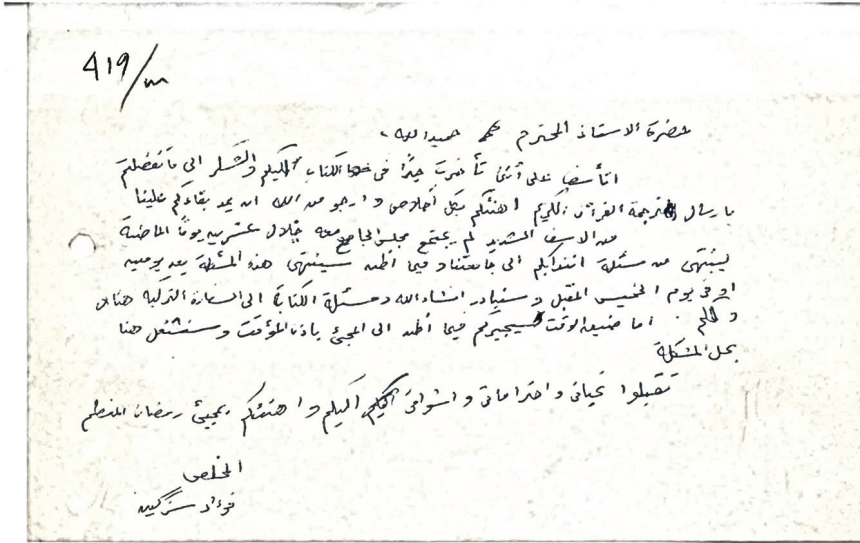 419/m
حضرة الاستاذ المحترم محمد حميد الله ،
اتأسف على أننى تأخرت جداً فى هذا الكتاب اليكم والشكر الى ما تفضلتم
بارسال ترجمة القرآن الكريم اهنئكم بكل أخلاص وارجو من الله ان يمد بقاءكم علينا
من الاسف الشديد لم يجتمع مجلس الجامعة خلال عشرين يوماً الماضية
لينتهى من مسئلة انتدابكم الى جامعتنا وفيما أظن سينتهى هذه المشكلة بعد يومين
او فى يوم الخميس المقبل وسنبادر انشاء الله ومسئلة الكتابة الى السفارة التركية هناك
و اما ضيق الوقت سيجبركم فيما أظن الى المجيئ باذن المؤقت وسنشتغل هنا
بحل المشكلة
تقبلوا تحياتى واحتراماتى واشواقى اليكم واهنئكم بمجيئ رمضان المعظم
المخلص
فؤاد سزگين